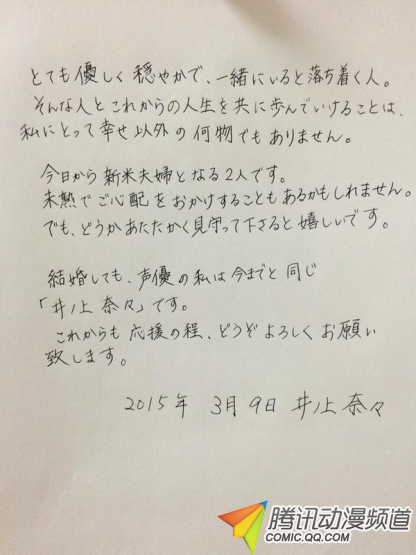 とても優しく穏やかで、一緒にいると落ち着く人。
そんな人とこれからの人生を共に歩んでいけることは、
私にとって幸せ以外の何物でもありません。
今日から新米夫婦となる2人です。
未熟でご心配をおかけすることもあるかもしれません。
でも、どうかあたたかく見守って下さると嬉しいです。
結婚しても、声優の私は今までと同じ
「井ノ上奈々」です。
これからも応援の程、どうぞよろしくお願い
致します。
2015年 3月9日 井ノ上奈々
腾讯动漫频道
COMIC.QQ.COM